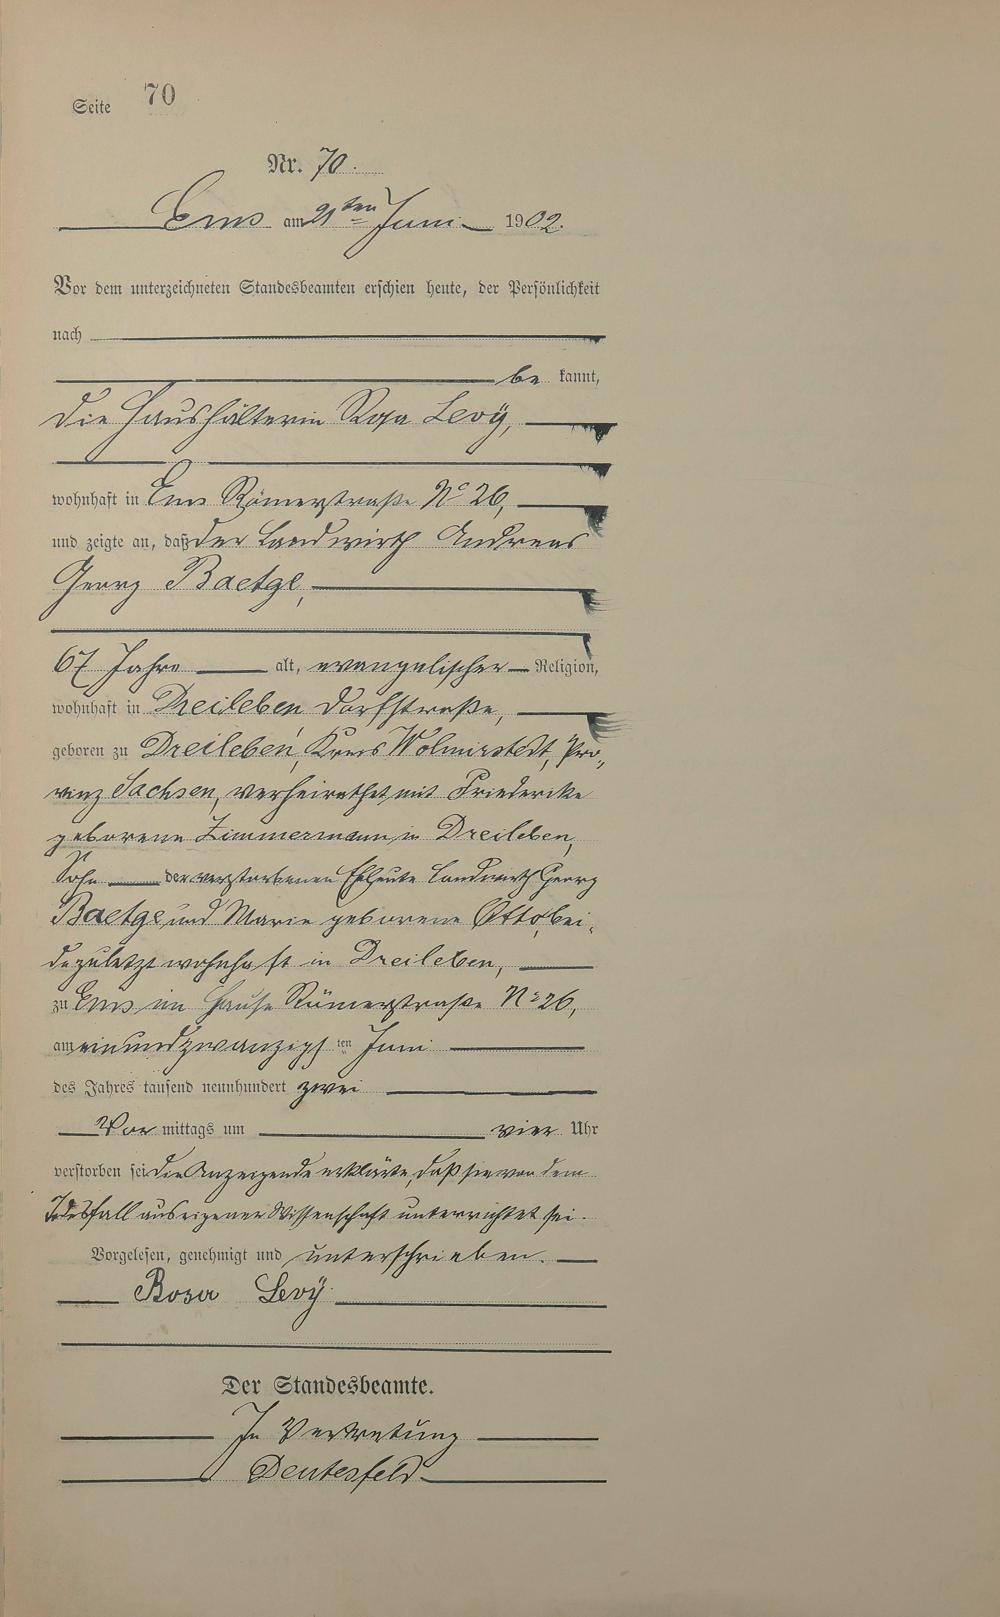 Seite 70
Nr. 70.
Ems am 21ten Juni 1902.
Vor dem unterzeichneten Standesbeamten erschien heute, der Persönlichkeit
nach
be kannt,
die Haushälterin Rosa Levÿ,
wohnhaft in Ems Römerstraße No 26,
und zeigte an, daß der Landwirth Andreas
Georg Baetge,
67 Jahre alt, evangelischer Religion,
wohnhaft in Dreileben Dorfstraße,
geboren zu Dreileben, Kreis Wolmirstedt, Pro„
vinz Sachsen, verheirathet mit Friederike
geborene Zimmermann in Dreileben,
Sohn der verstorbenen Eheleute Landwirth Georg
Baetge und Marie geborene Otto, bei„
de zuletzt wohnhaft in Dreileben,
zu Ems im Hause Römerstraße No 26,
am einundzwanzigs ten Juni
des Jahres tausend neunhundert zwei
Vor mittags um vier Uhr
verstorben sei die Anzeigende erklärte, daß sie von dem
Todesfall aus eigener Wissenschaft unterrichtet sei.
Vorgelesen, genehmigt und unterschrieben.
Rosa Levÿ
Der Standesbeamte.
In Vertretung
Deutesfeld